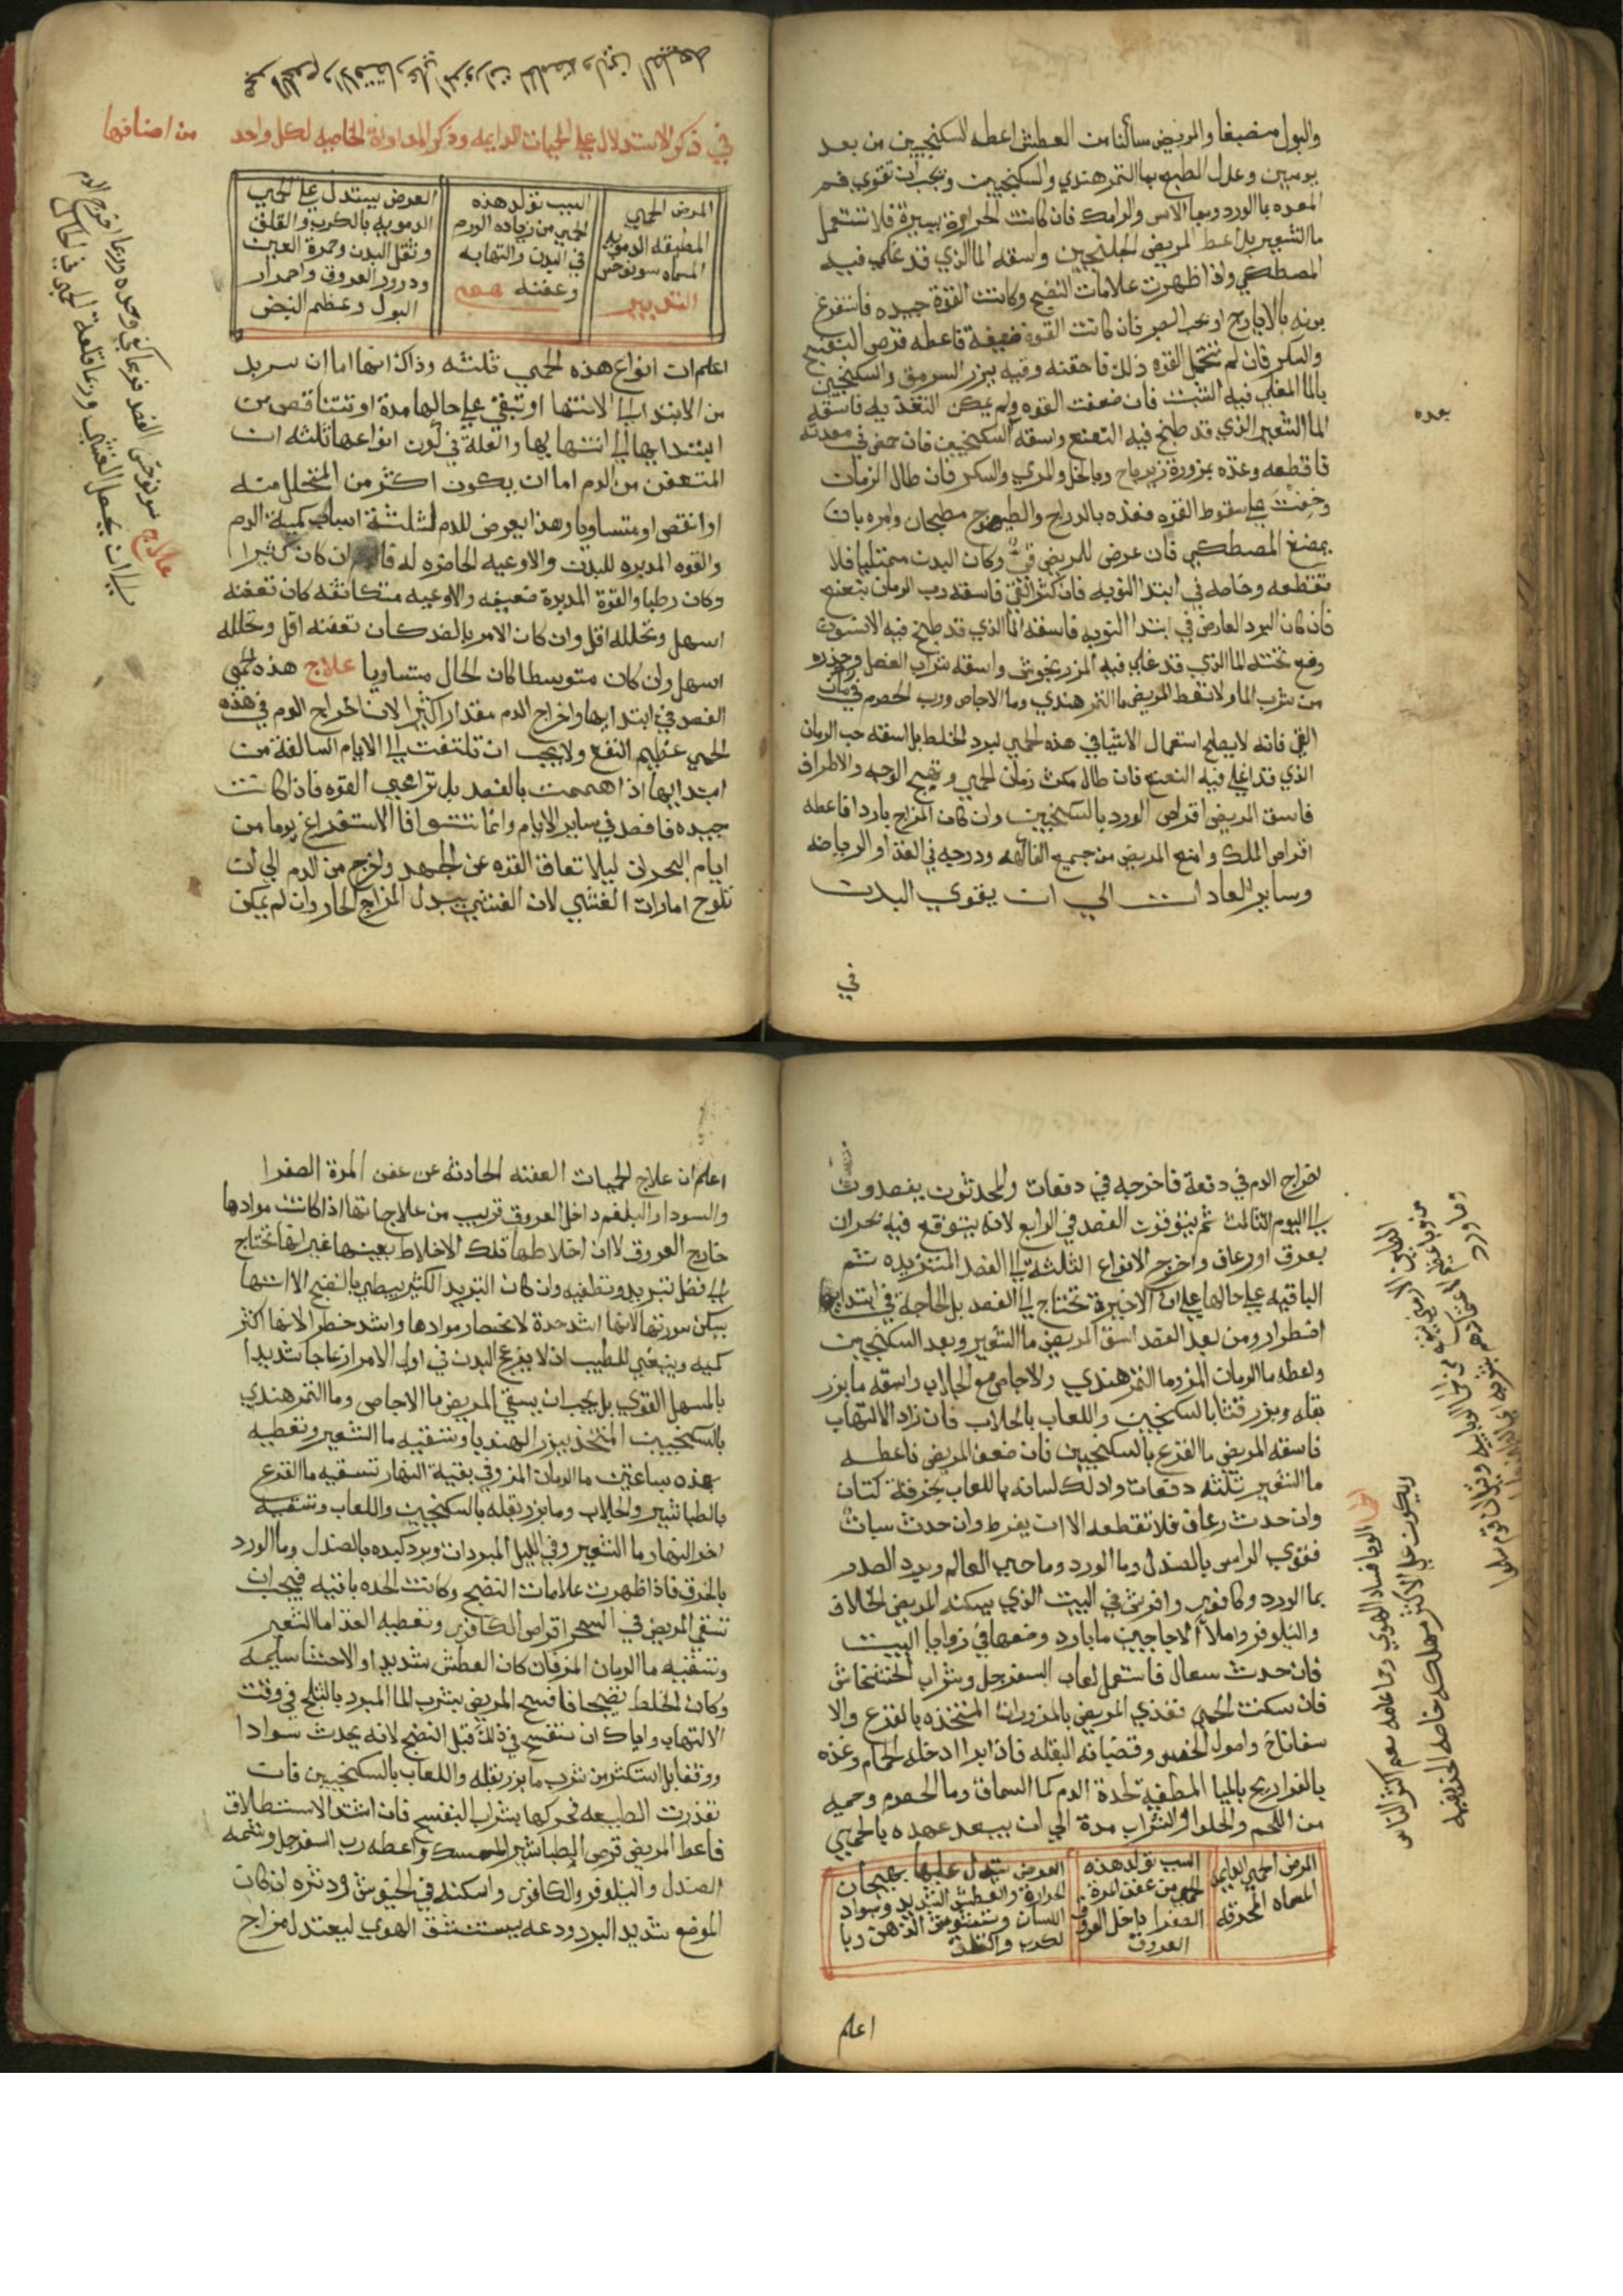 والبول منصبغا والمريض سالنا من العطش اعطه السكنجبين من بعد
يومين وعدل الطبع بماء التمر هندي والسكنجبين ويجب ان تقوي فم
المعده بالورد وبماء الاس والرامك فان كانت الحرارة يسيرة فلا تستعمل
ما الشعير بل اعط المريض الجلنجبين واسقه الما الذي قد غلي فيه
المصطكي واذا ظهرت علامات النضج وكانت القوة جيده فاستفرغ
بدنه بالايارج او بحب الصبر فان كانت القوه ضعيفة فاعطه قرص البنفسج
والسكر فان لم تحتمل القوه ذلك فاحقنه وقيه ببزر السرمق والسكنجبين
بالما المغلي فيه الشبت فان ضعفت القوه ولم يمكن التغذيه فاسقه
الما الشعير الذي قد طبخ فيه النعنع واسقه السكنجبين فان حمض في معدته
بعده
فاقطعه وغذه بمزورة زيرباج وبالخل والمري والسكر فان طال الزمان
وخفت على سقوط القوه فغذه بالدراج والطيهوج مطجنان ومره بان
يمضغ المصطكي فان عرض للمريض قي وكان البدن ممتليا فلا
تقطعه وخاصه في ابتدا النوبه فان كثر القي فاسقه رب الرمان بنعنع
فان كان البرد العارض في ابتدا النوبه فاسقه الما الذي قد طبخ فيه الانيسون
وضع تحته الما الذي قد غلي فيه المرزنجوش واسقه شراب العنصل وحذره
من شرب الما ولا تعط المريض ما التمر هندي وما الاجاص ورب الحصرم في مكان
القي فانه لا يصلح استعمال الاشيا في هذه الحمي لبرد الخلط بل اسقه حب الرمان
الذي قد اغلي فيه النعنع فان طال مكث زمان الحمي وتهيج الوجه والاطراف
فاسق المريض اقراص الورد بالسكنجبين وان كان المزاج باردا فاعطه
اقراص الملك وامنع المريض من جميع الفاكهه ودرجه في الغذا والرياضه
وساير العادات الي ان يقوي البدن
في
في ذكر الاستدلال علي الحميات الدايمه وذكر المداواة الخاصيه لكل واحد من اصنافها
المرض الحمي
المطبقه الدمويه
المسماه سونوخس
التدبير
السبب تولد هذه
الحمي من زياده الورم
في البدن والتهابه
وعفنه
العرض يستدل علي الحمي
الدمويه بالكرب والقلق
وثقل البدن وحمرة العين
ودرور العروق واحمرار
البول وعظم النبض
اعلم ان انواع هذه الحمي ثلثه وذاك انها اما ان تتزيد
من الابتدا الي الانتها او تبقي علي حالها مدة او تتناقص من
ابتدايها الي انتهايها والعلة في كون انواعها ثلثه ان
المتعفن من الدم اما ان يكون اكثر من المتحلل منه
او انقص او متساويا وهذا يعرض للدم لثلثة اسباب كمية الدم
والقوه المدبره للبدن والاوعيه الحاضره له فالدم ان كان كثيرا
وكان رطبا والقوة المدبرة ضعيفه والاوعيه متكاثفه كان تعفنه
اسهل وتحلله اقل وان كان الامر بالضد كان تعفنه اقل وتحلله
اسهل وان كان متوسطا كان الحال متساويا علاج هذه الحمي
الفصد في ابتدايها واخراج الدم مقدارا كثيرا لان اخراج الدم في هذه
الحمي عظيم النفع ولا يجب ان تلتفت الي الايام السالفة من
ابتدايها اذا هممت بالفصد بل تراعي القوه فاذا كانت
جيده فافصد في ساير الايام وانما نتوقا الاستفراغ يوما من
ايام البحران ليلا تعاق القوه عن الجهد واخرج من الدم الي ان
تلوح امارات الغشي لان الغشي يبدل المزاج الحار وان لم يمكن
علاج سونوخس الفصد
اخراج الدم في دفعة فاخرجه في دفعات والمحدثون يفصدون
الي اليوم الثالث ثم يتوقون الفصد في الرابع لانه يتوقع فيه بحران
بعرق او رعاف واحوج الانواع الثلثة الي الفصد المتزيده ثم
الباقيه علي حالها علي ان الاخيرة تحتاج الي الفصد بل الحاجه في ابتدايها
اضطرار ومن بعد الفصد اسق المريض ما الشعير وبعد السكنجبين
واعطه ما الرمان المز وما التمر هندي والاجاص مع الجلاب واسقه ما بزر
بقله وبزر قثا بالسكنجبين واللعاب بالجلاب فان زاد الالتهاب
فاسقه المريض ما القرع بالسكنجبين فان ضعف المريض فاعطه
ما الشعير ثلثه دفعات وادلك لسانه باللعاب بخرقة كتان
وان حدث رعاف فلا تقطعه الا ان يفرط وان حدث سبات
فقوي الراس بالصندل وما الورد وما حي العالم وبرد الصدر
بما الورد وكافور وافرش في البيت الذي يسكنه المريض الخلاف
والنيلوفر واملأ الاجاجين ما بارد وضعها في زوايا البيت
فان حدث سعال فاستعمل لعاب السفرجل وشراب الخشخاش
فان سكنت الحمي فغذي المريض بالمزورات المتخذه بالقرع والا
سفاناخ واصول الخس وقضبانه البقله فاذا برا ادخله الحمام وغذه
بالفراريج بالمياه المطفيه لحدة الدم كما السماق وما الحصرم وحميه
من اللحم والحلوا والشراب مدة الي ان يبعد عهده بالحمي
المرض الحمي الدايمه
المسماه المحرقه
السبب تولد هذه
الحمي من عفن المرة
الصفرا داخل العروق
العروق
العرض يستدل عليها بهيجان
الحرارة والعطش الشديد وسواد
اللسان وتشويش الذهن وبا
لكرب والقلق
اعلم
الوبا فساد الهوي
ويكون علي الاكثر مهلكه خاصه الخريفيه
اعلم ان علاج الحميات العفنه الحادثه عن عفن المرة الصفرا
والسودا والبلغم داخل العروق قريب من علاجاتها اذا كانت موادها
خارج العروق لان اخلاطها تلك الاخلاط بعينها غير انها تحتاج
الي فضل تبريد وتطفيه وان كان التبريد الكثير يبطي بالنضج الا انها
يسكن سورتها لانها اشد حدة لانحصار موادها واشد خطر لانها اكثر
كميه وينبغي للطبيب ان لا يفرغ البدن في اول الامر ازعاجا شديدا
بالمسهل القوي بل يجب ان يسقي المريض ما الاجاص وما التمر هندي
بالسكنجبين المتخذ ببزر الهندبا وتسقيه ما الشعير وتعطيه
بعده بساعتين ما الرمان المز وفي بقية النهار تسقيه ما القرع
بالطباشير والجلاب وما بزر بقله بالسكنجبين واللعاب وتسقيه
اخر النهار ما الشعير وفي الليل المبردات وبرد كبده بالصندل وما الورد
بالخرق فاذا ظهرت علامات النضج وكانت الحده باقيه فيجب ان
تسقي المريض في السحر اقراص الكافور وتعطيه الغذا ما الشعير
وتسقيه ما الرمان المز فان كان العطش شديدا والاحشا سليمه
وكان الخلط نضيجا فافسح المريض بشرب الما المبرد بالثلج في وقت
الالتهاب واياك ان تفسح في ذلك قبل النضج لانه يحدث سوادا
ووقفا بل استكثر من شرب ما بزر بقله واللعاب بالسكنجبين فان
تعذرت الطبيعه فحركها بشراب البنفسج فان اشتد الاستطلاق
فاعط المريض قرص الطباشير الممسك واعطه رب السفرجل وشمه
الصندل والنيلوفر والكافور واسكنه في الخيوش ودثره ان كان
الموضع شديد البرد ودعه يستنشق الهوي ليعتدل مزاج